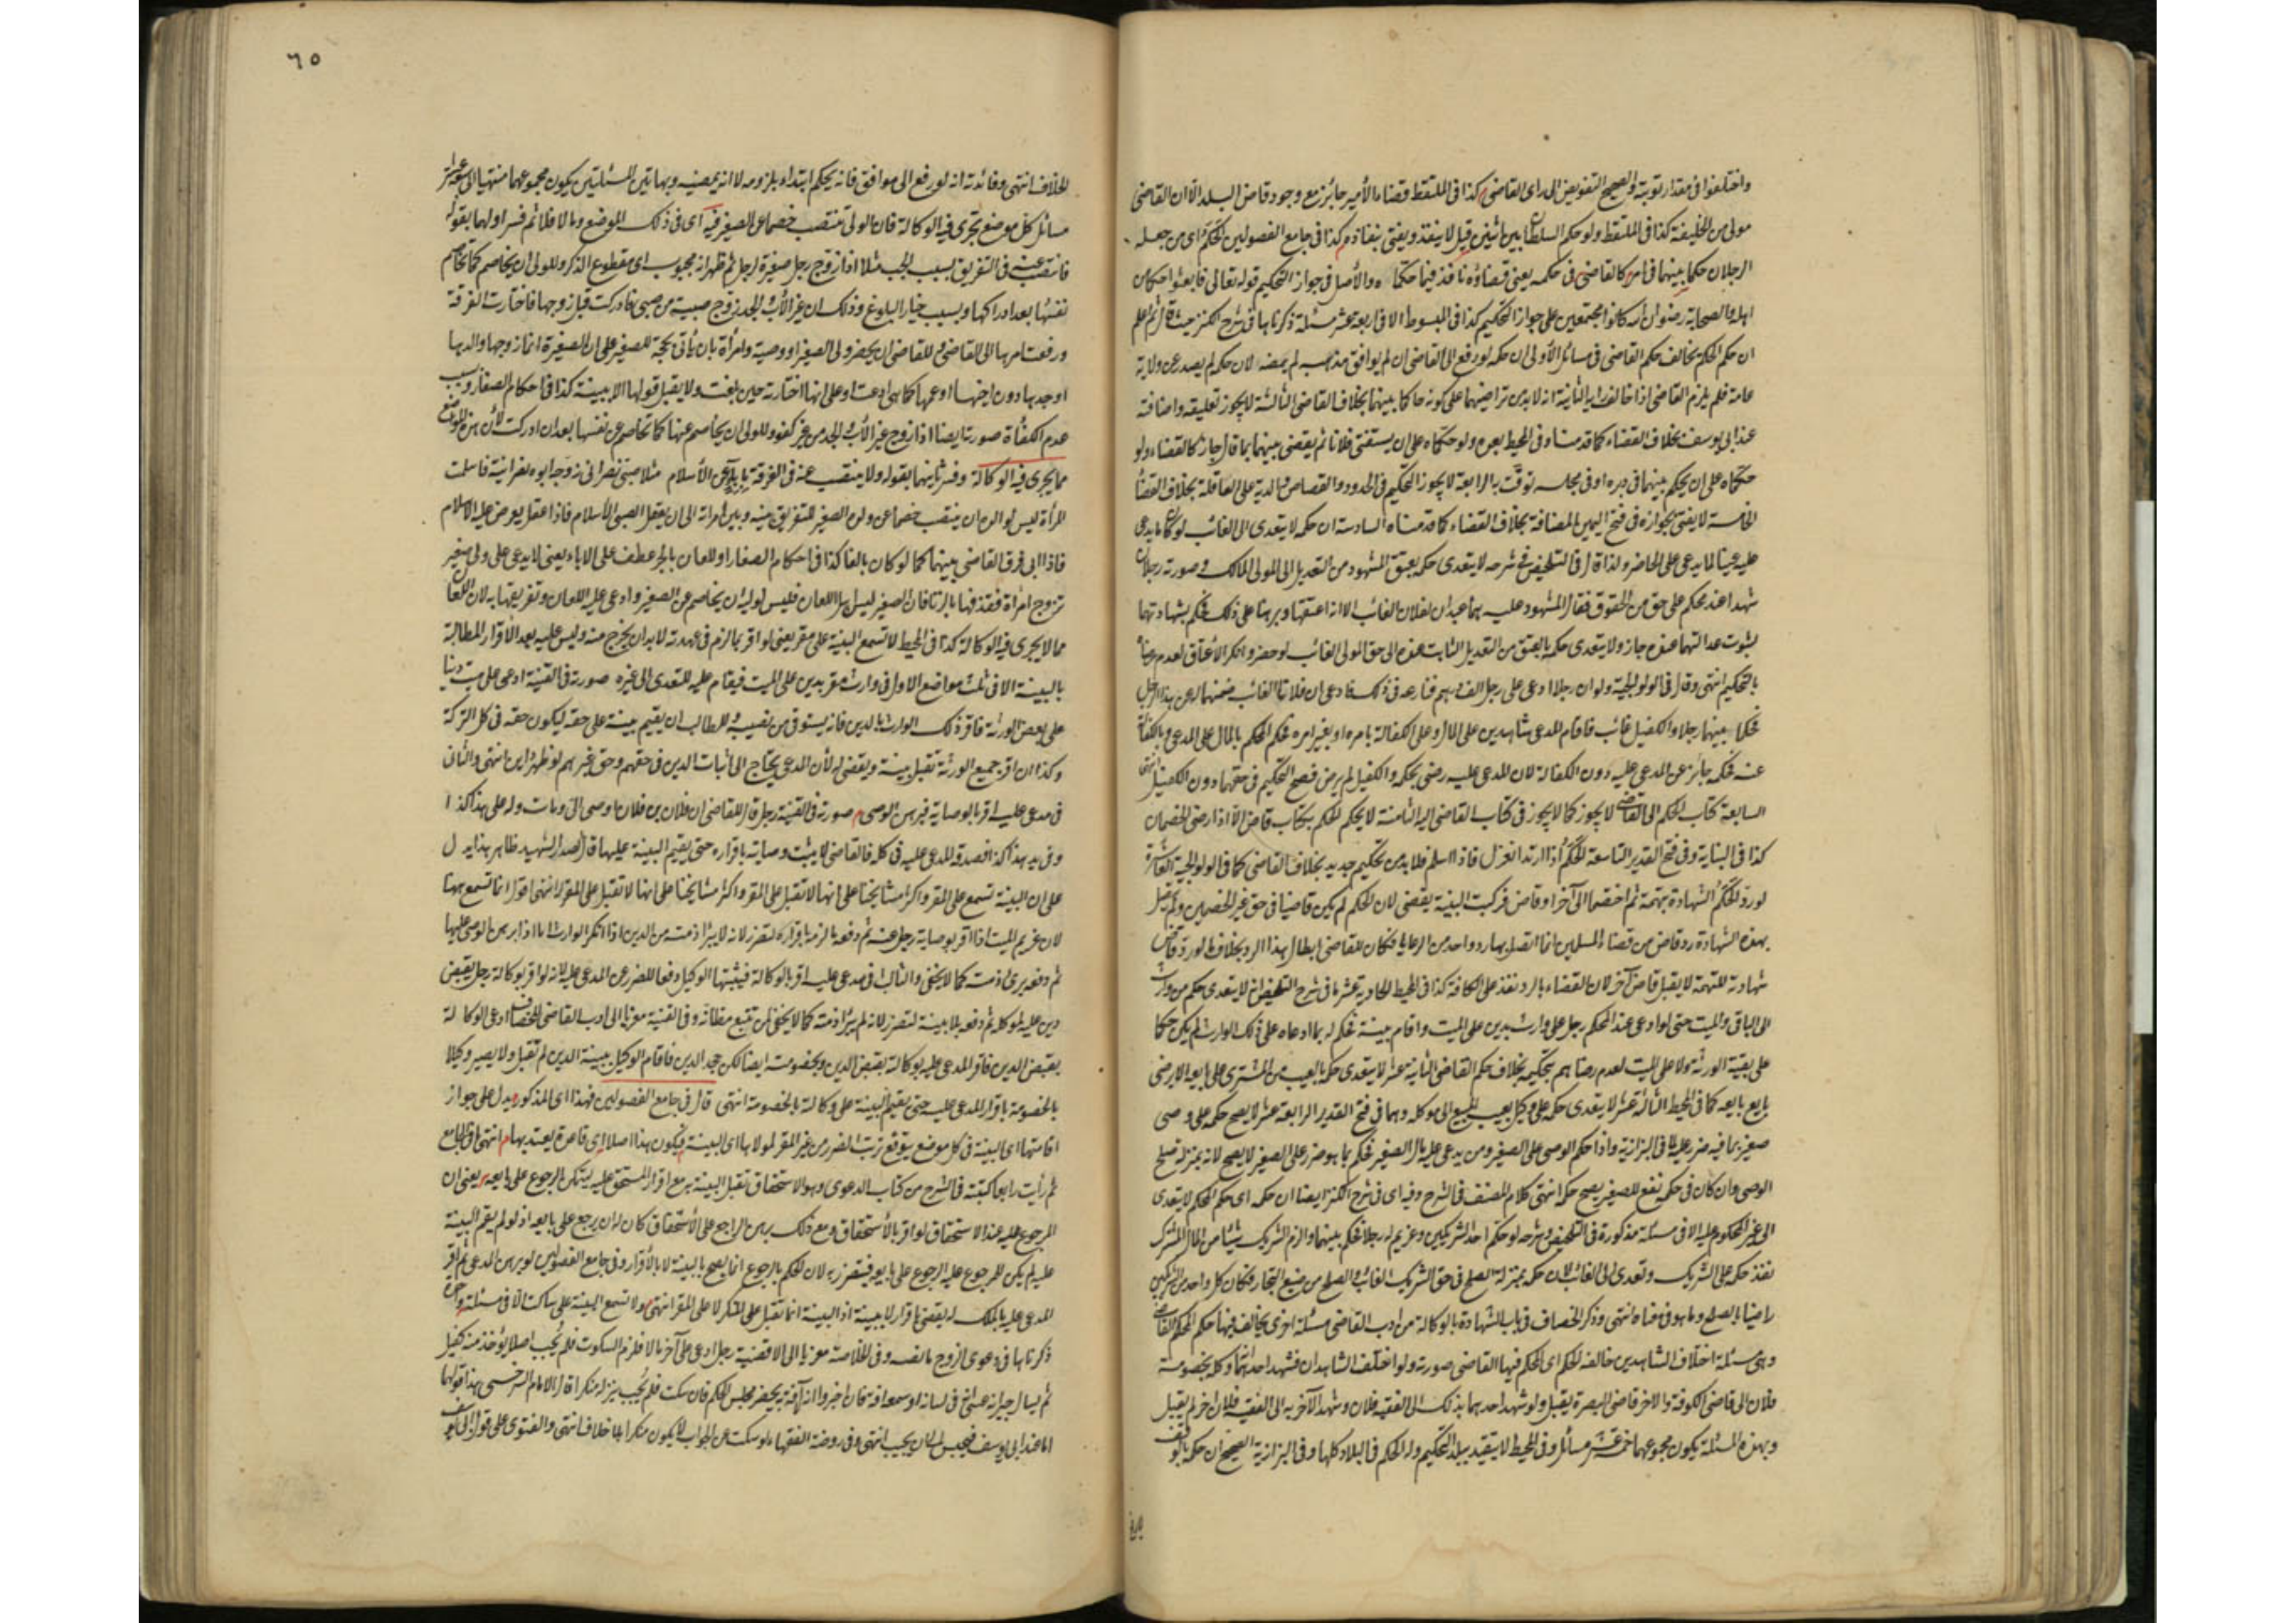 واختلفوا فى مقدار توبته والصحيح التفويض الى راى القاضى كذا فى الملتقط قضاء الأمير جائز مع وجود قاض البلد الا ان القاضى
مولى من الخليفة كذا فى الملتقط ولو حكم السلطان بين اثنين قيل لا ينفذ ويفتى بنفاذه كذا فى جامع الفصولين المحكم اى من جعله
الرجلان حكما بينهما فى امر كالقاضى فى حكمه يعنى قضاؤه نافذ فيما حكماه والأصل فى جواز التحكيم قوله تعالى فابعثوا حكما من
اهله والصحابة رضوان الله كانوا مجتمعين على جواز التحكيم كذا فى المبسوط الا فى اربعة عشر مسئلة ذكرناها فى شرح الكنز حيث قال ثم اعلم
ان حكم المحكم يخالف حكم القاضى فى مسائل الأولى ان حكمه لو رفع الى القاضى ان لم يوافق مذهبه لم يمضه لان حكمه لم يصدر عن ولاية
عامة فلم يلزم القاضى اذا خالف رايه الثانية انه لا بد من تراضيهما على كونه حاكما بينهما بخلاف القاضى الثالثة لا يجوز تعليقه واضافته
عند ابى يوسف بخلاف القضاء كما قدمناه وفى المحيط بعده ولو حكماه على ان يستفتى فلانا ثم يقضى بينهما بما قال جاز كالقضاء ولو
حكماه على ان يحكم بينهما فى يومه او فى مجلسه توقت به الرابعة لا يجوز التحكيم فى الحدود والقصاص والدية على العاقلة بخلاف القضا
الخامسة لا يفتى بجوازه فى فسخ اليمين المضافة بخلاف القضاء كما قدمناه السادسة ان حكمه لا يتعدى الى الغائب لو كان ما يدعى
عليه سببا لما يدعى على الحاضر ولذا قال فى التلخيص فى شرحه لا يتعدى حكمه بعتق المشهود من التعديل الى المولى المالك وصورته رجلان
شهدا عند محكم على حق من الحقوق فقال المشهود عليه هما عبدان لفلان الغائب الا انه اعتقهما وبرهنا على ذلك فحكم بشهادتهما
بثبوت عدالتهما عنده جاز ولا يتعدى حكمه بالعتق من التعديل الثابت عنده الى حق المولى الغائب لو حضر وانكر الاعتاق لعدم رضاه
بالتحكيم انتهى وقال فى الولوالجية ولو ان رجلا ادعى على رجل الف درهم فنازعه فى ذلك فادعى ان فلانا الغائب ضمنها له عن هذا الرجل
فحكما بينهما رجلا والكفيل غائب فاقام المدعى شاهدين على المال وعلى الكفالة بامره او بغير امره فحكم المحكم بالمال على المدعى وبالكفالة
عنه فحكمه جائز عن المدعى عليه دون الكفالة لان المدعى عليه رضى بحكمه والكفيل لم يرض فصح التحكيم فى حقهما دون الكفيل انتهى
السابعة كتاب المحكم الى القاضى لا يجوز كما لا يجوز فى كتاب القاضى اليه الثامنة لا يحكم المحكم بكتاب قاض الا اذا رضى الخصمان
كذا فى البناية وفى فتح القدير التاسعة المحكم اذا ارتد انعزل فاذا اسلم فلا بد من تحكيم جديد بخلاف القاضى كما فى الولوالجية العاشرة
لو رد المحكم الشهادة بتهمة ثم اختصما الى آخر او قاض فزكيت البينة يقضى لان المحكم لم يكن قاضيا فى حق غير الخصمين ولم تتصل
بهذه الشهادة رد قاض من قضاة المسلمين انما اتصل بها رد واحد من الرعايا فكان للقاضى ابطال هذا الرد بخلاف ما لو رد قاض
شهادته للتهمة لا يقبل قاض آخر لان القضاء بالرد نفذ على الكافة كذا فى المحيط الحادية عشر ما فى شرح التلخيص انه لا يتعدى حكمه من وارث
الى الباقى والميت حتى لو ادعى عند المحكم رجل على وارث بدين على الميت واقام بينة فحكم له بما ادعاه على ذلك الوارث لم يكن حكما
على بقية الورثة ولا على الميت لعدم رضاهم بتحكيمه بخلاف حكم القاضى الثانية عشر لا يتعدى حكمه بالعيب من المشترى على بايعه الا برضى
بايع بايعه كما فى المحيط الثالثة عشر لا يتعدى حكمه على وكيل بعيب المبيع الى موكله وهما فى فتح القدير الرابعة عشر لا يصح حكمه على وصى
صغير بما فيه ضرر عليه لما فى البزازية واذا حكم الوصى على الصغير ومن يدعى عليه مال الصغير فحكم بما هو ضرر على الصغير لا يصح لانه بمنزلة صلح
الوصى وان كان فى حكمه نفع للصغير يصح حكمه انتهى كلام المصنف فى الشرح وفيه اى فى شرح الكنز ايضا ان حكمه اى حكم المحكم لا يتعدى
الى غير المحكوم عليه الا فى مسئلة مذكورة فى التلخيص وشرحه لو حكم احد الشريكين وغريم له رجلا فحكم بينهما والزم الشريك شيئا من المال المشترك
نفذ حكمه على الشريك وتعدى الى الغائب لان حكمه بمنزلة الصلح فى حق الشريك الغائب والصلح من صنيع التجار فكان كل واحد من الشريكين
راضيا بالصلح وما هو فى معناه انتهى وذكر الخصاف فى باب الشهادة بالوكالة من ادب القاضى مسئلة اخرى يخالف فيها حكم المحكم القاضى
وهى مسئلة اختلاف الشاهدين خالف المحكم اى المحكم فيها القاضى صورته ولو اختلف الشاهدان فشهد احدهما انه وكله بخصومة
فلان الى قاضى الكوفة والاخر قاضى البصرة يقبل ولو شهد احدهما بذلك الى الفقيه فلان وشهد الآخر به الى الفقيه فلان اخر لم يقبل
وبهذه المسئلة يكون مجموعهما خمسة عشر مسائل وفى المحيط لا يتقيد ببلد التحكيم وله الحكم فى البلاد كلها وفى البزازية الصحيح ان حكمه بالوقف
يرفع
٦٥
الخلاف انتهى وفائدته انه لو رفع الى موافق فانه يحكم ابتداء بلزومه لا انه يمضيه وبهاتين المسئلتين يكون مجموعهما منتهيا الى سبعة عشر
مسائل كل موضع تجرى فيه الوكالة فان الولى ينتصب خصما عن الصغير فيه اى فى ذلك الموضع وما لا فلا ثم فسر اولهما بقوله
فانتصب عنه فى التفريق بسبب الجب مثلا اذا زوج رجل صغيرة لرجل ثم ظهر انه مجبوب اى مقطوع الذكر وللولى ان يخاصم كما تخاصم
نفسها بعد ادراكها وبسبب خيار البلوغ وذلك ان غير الأب والجد زوج صبية من صبى فادركت قبل زوجها فاختارت الفرقة
ورفعت امرها الى القاضى للقاضى ان يحضر ولى الصغير او وصيه وامرأة بان يأتى بحجة للصغير على ان الصغيرة انما زوجها والدها
او جدها دون اخيها او عمها كما هى ادعت او على انها اختارته حين بلغت ولا يقبل قولها الا ببينة كذا فى احكام الصغار وبسبب
عدم الكفاءة صورته ايضا اذا زوج غير الأب والجد من غير كفو وللولى ان يخاصم عنها كما تخاصم عن نفسها بعد ان ادركت لأن هذه المواضع
مما يجرى فيه الوكالة وفسر ثانيهما بقوله ولا ينتصب عنه فى الفرقة بالاباء عن الأسلام مثلا صبى نصرانى زوجه ابوه نصرانية فاسلمت
المرأة ليس لوالده ان ينتصب خصما عن ولده الصغير للتفريق بينه وبين امراته الى ان يعقل الصبى الأسلام فاذا عقل يعرض عليه الاسلام
فاذا ابى فرق القاضى بينهما كما لو كان بالغا كذا فى احكام الصغار او اللعان بالجر عطف على الاباء يعنى لا يدعى على ولى صغير
تزوج امرأة فقذفها بالزنا فان الصغير ليس له اللعان فليس لوليه ان يخاصم عن الصغير وادعى عليه اللعان وتفريقها به لان اللعان
مما لا يجرى فيه الوكالة كذا فى المحيط لا تسمع البينة على مقر يعنى لو اقر بما لزم فى عهدته لا بد ان يخرج منه وليس عليه بعد الأقرار المطالبة
بالبينة الا فى ثلث مواضع الاول فى وارث مقر بدين على الميت فيقام عليه للتعدى الى غيره صورته فى القنية ادعى على ميت دينا
على بعض الورثة فاقر ذلك الوارث بالدين فانه يستوفى من نصيبه وللطالب ان يقيم بينة على حقه ليكون حقه فى كل التركة
وكذا ان اقر جميع الورثة تقبل بينته ويقضى له لأن المدعى يحتاج الى اثبات الدين فى حقهم وحق غيرهم لو ظهر اين انتهى والثانى
فى مدعى عليه اقر بالوصاية فبرهن الوصى صورته فى القنية رجل قال للقاضى ان فلان بن فلان اوصى الى ومات وله على هذا كذا
وفى يد هذا كذا فصدقه المدعى عليه فى كله فالقاضى لا يثبت وصايته باقراره حتى يقيم البينة عليها قال الصدر الشهيد ظاهر هذا يدل
على ان البينة تسمع على المقر واكثر مشايخنا على انها لا تقبل على المقر واكثر مشايخنا على انها لا تقبل على المقر انتهى اقول انما تسمع ههنا
لان غريم الميت اذا اقر بوصاية رجل عنه ثم دفعه ما لزمه باقراره لتضرر لانه لا يبرأ ذمته من الدين اذا انكر الوارث اما اذا برهن الوصى عليها
ثم دفعه يبرئ ذمته كما لا يخفى والثالث فى مدعى عليه اقر بالوكالة فيثبتها الوكيل دفعا للضرر عن المدعى عليه لانه لو اقر بوكالة رجل بقبض
دين عليه لموكله ثم دفعه بلا بينة لتضرر لانه لم يبرأ ذمته كما لا يخفى لمن تتبع مظانه وفى القنية معزيا الى ادب القاضى للخصاف ادعى الوكالة
بقبض الدين فاقر المدعى عليه بوكالته بقبض الدين وبخصومته ايضا لكن جحد الدين فاقام الوكيل ببينة الدين لم تقبل ولا يصير وكيلا
بالخصومة باقرار المدعى عليه حتى يقيم البينة على وكالته بالخصومة انتهى قال فى جامع الفصولين فهذا اى المذكور يدل على جواز
اقامتها اى البينة فى كل موضع يتوقع ترتب الضرر من غير المقر لولاها اى البينة فيكون هذا اصلا اى قاعدة يعتد بها انتهى ما فى الجامع
ثم رأيت رابعا كتبته فى الشرح من كتاب الدعوى وهو الاستحقاق تقبل البينة به مع اقرار المستحق عليه ليتمكن الرجوع على بايعه يعنى ان
المرجوع عليه عند الاستحقاق لو اقر بالأستحقاق ومع ذلك برهن الراجع على الأستحقاق كان له ان يرجع على بايعه اذ لو لم يقم البينة
عليه لم يكن للمرجوع عليه الرجوع على بايعه فيتضرر به لان الحكم بالرجوع انما يصح بالبينة لا بالأقرار وفى جامع الفصولين لو برهن المدعى ثم اقر
المدعى عليه بالملك له يقضى باقرار لا ببينة اذ البينة انما تقبل على المنكر لا على المقر انتهى ولا تسمع البينة على ساكت الا فى مسئلة واحدة
ذكرناها فى دعوى الزوج بالنفسه وفى الخلاصة معزيا الى الاقضية رجل ادعى على آخر مالا فلزم السكوت فلم يجب اصلا يؤخذ منه كفيل
ثم يسال جيرانه عسى فى لسانه او سمعه افة فان اخبروا انه لا آفة به يحضر مجلس الحكم فان سكت فلم يجب ينزله منكرا قال الامام السرخسى هذا قولهما
اما عند ابى يوسف فيحبس الى ان يجيب انتهى وفى روضة الفقهاء لو سكت عن الجواب لا يكون منكرا بلا خلاف انتهى والفتوى على قول ابى يوسف